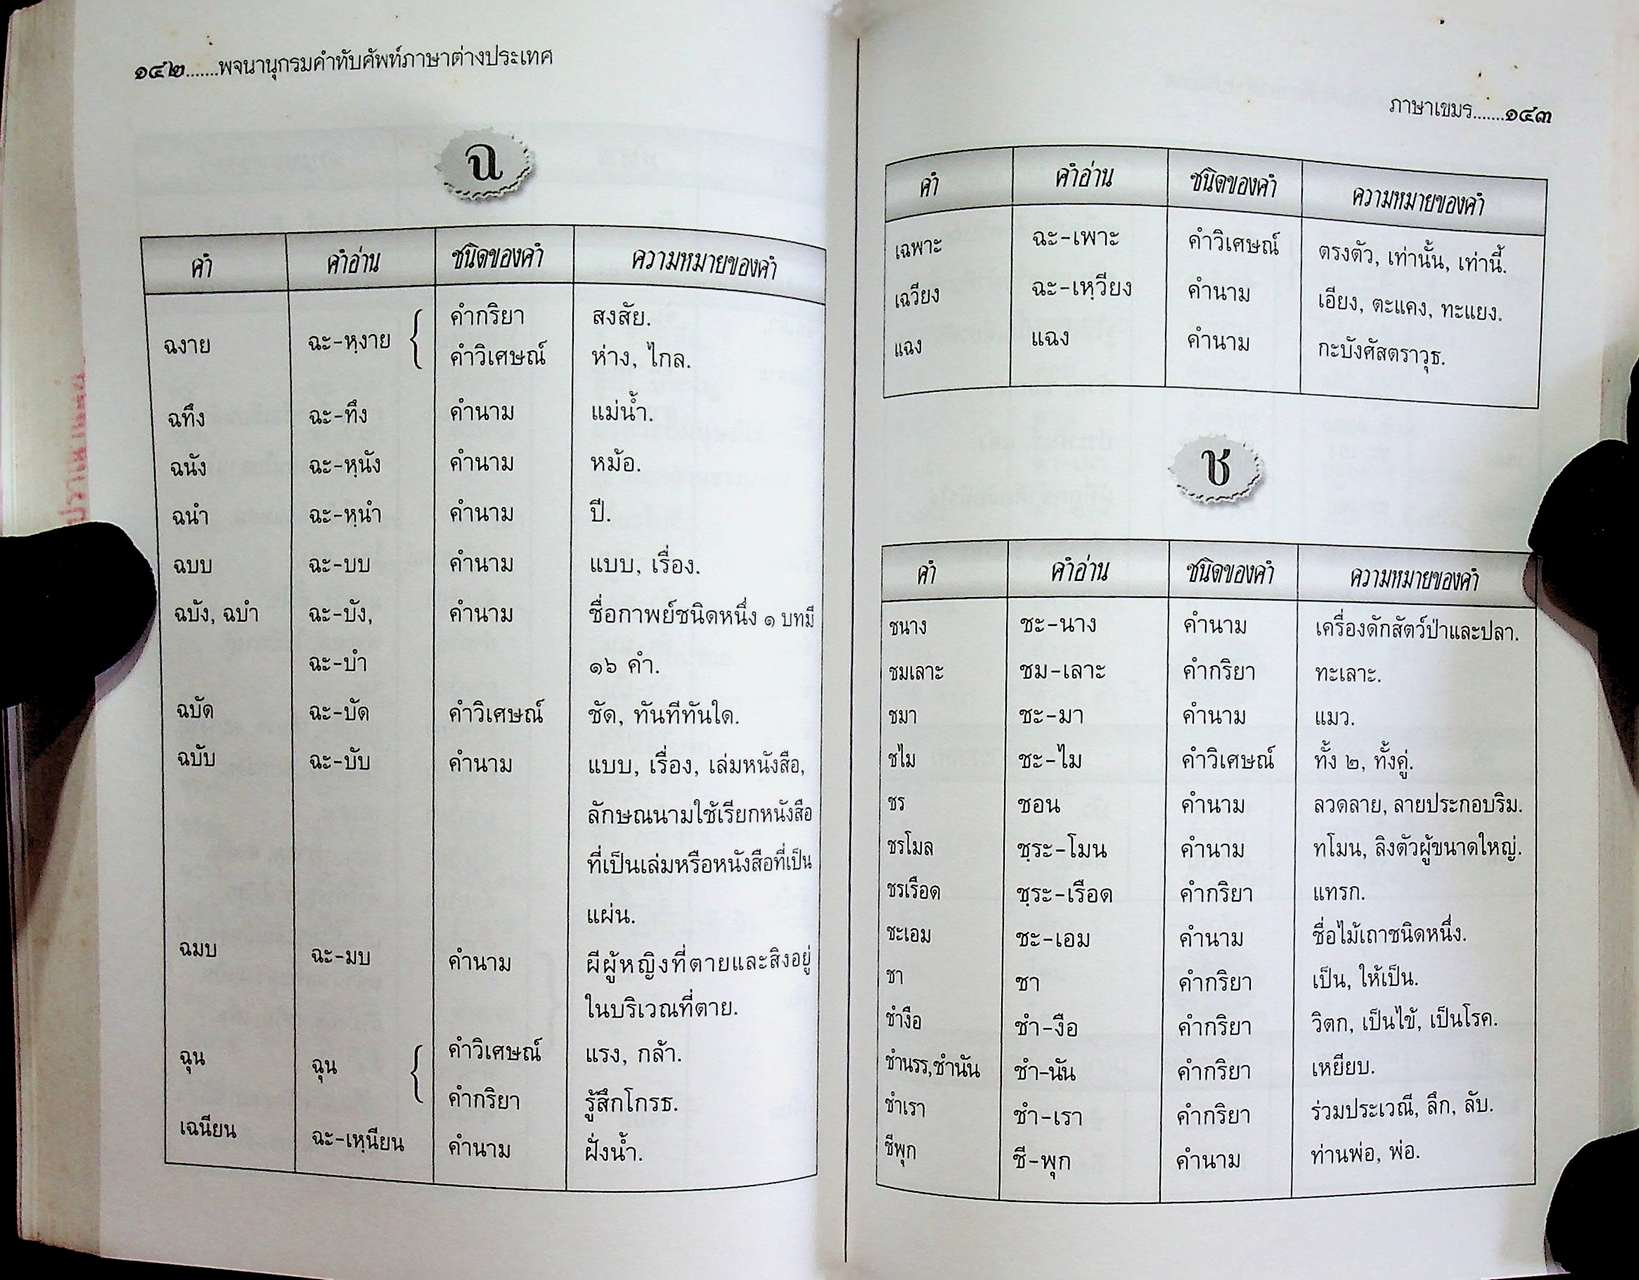 ๑๔๒.......พจนานุกรมคำทับศัพท์ภาษาต่างประเทศ
ฉ
คำ คำอ่าน ชนิดของคำ ความหมายของคำ
ฉงาย ฉะ-หฺงาย { คำกริยา สงสัย.
คำวิเศษณ์ ห่าง, ไกล.
ฉทึง ฉะ-ทึง คำนาม แม่น้ำ.
ฉนัง ฉะ-หฺนัง คำนาม หม้อ.
ฉนำ ฉะ-หฺนำ คำนาม ปี.
ฉบบ ฉะ-บบ คำนาม แบบ, เรื่อง.
ฉบัง, ฉบำ ฉะ-บัง, คำนาม ชื่อกาพย์ชนิดหนึ่ง ๑ บทมี
ฉะ-บำ ๑๖ คำ.
ฉบัด ฉะ-บัด คำวิเศษณ์ ชัด, ทันทีทันใด.
ฉบับ ฉะ-บับ คำนาม แบบ, เรื่อง, เล่มหนังสือ,
ลักษณนามใช้เรียกหนังสือ
ที่เป็นเล่มหรือหนังสือที่เป็น
แผ่น.
ฉมบ ฉะ-มบ คำนาม ผีผู้หญิงที่ตายและสิงอยู่
ในบริเวณที่ตาย.
ฉุน ฉุน { คำวิเศษณ์ แรง, กล้า.
คำกริยา รู้สึกโกรธ.
เฉนียน ฉะ-เหฺนียน คำนาม ฝั่งน้ำ.
ภาษาเขมร.......๑๔๓
คำ คำอ่าน ชนิดของคำ ความหมายของคำ
เฉพาะ ฉะ-เพาะ คำวิเศษณ์ ตรงตัว, เท่านั้น, เท่านี้.
เฉวียง ฉะ-เหฺวียง คำนาม เอียง, ตะแคง, ทะแยง.
แฉง แฉง คำนาม กะบังศัสตราวุธ.
ช
คำ คำอ่าน ชนิดของคำ ความหมายของคำ
ชนาง ชะ-นาง คำนาม เครื่องดักสัตว์ป่าและปลา.
ชมเลาะ ชม-เลาะ คำกริยา ทะเลาะ.
ชมา ชะ-มา คำนาม แมว.
ชไม ชะ-ไม คำวิเศษณ์ ทั้ง ๒, ทั้งคู่.
ชร ชอน คำนาม ลวดลาย, ลายประกอบริม.
ชรโมล ชฺระ-โมน คำนาม ทโมน, ลิงตัวผู้ขนาดใหญ่.
ชรเรือด ชฺระ-เรือด คำกริยา แทรก.
ชะเอม ชะ-เอม คำนาม ชื่อไม้เถาชนิดหนึ่ง.
ชา ชา คำกริยา เป็น, ให้เป็น.
ชำงือ ชำ-งือ คำกริยา วิตก, เป็นไข้, เป็นโรค.
ชำนรร,ชำนัน ชำ-นัน คำกริยา เหยียบ.
ชำเรา ชำ-เรา คำกริยา ร่วมประเวณี, ลึก, ลับ.
ชีพุก ชี-พุก คำนาม ท่านพ่อ, พ่อ.